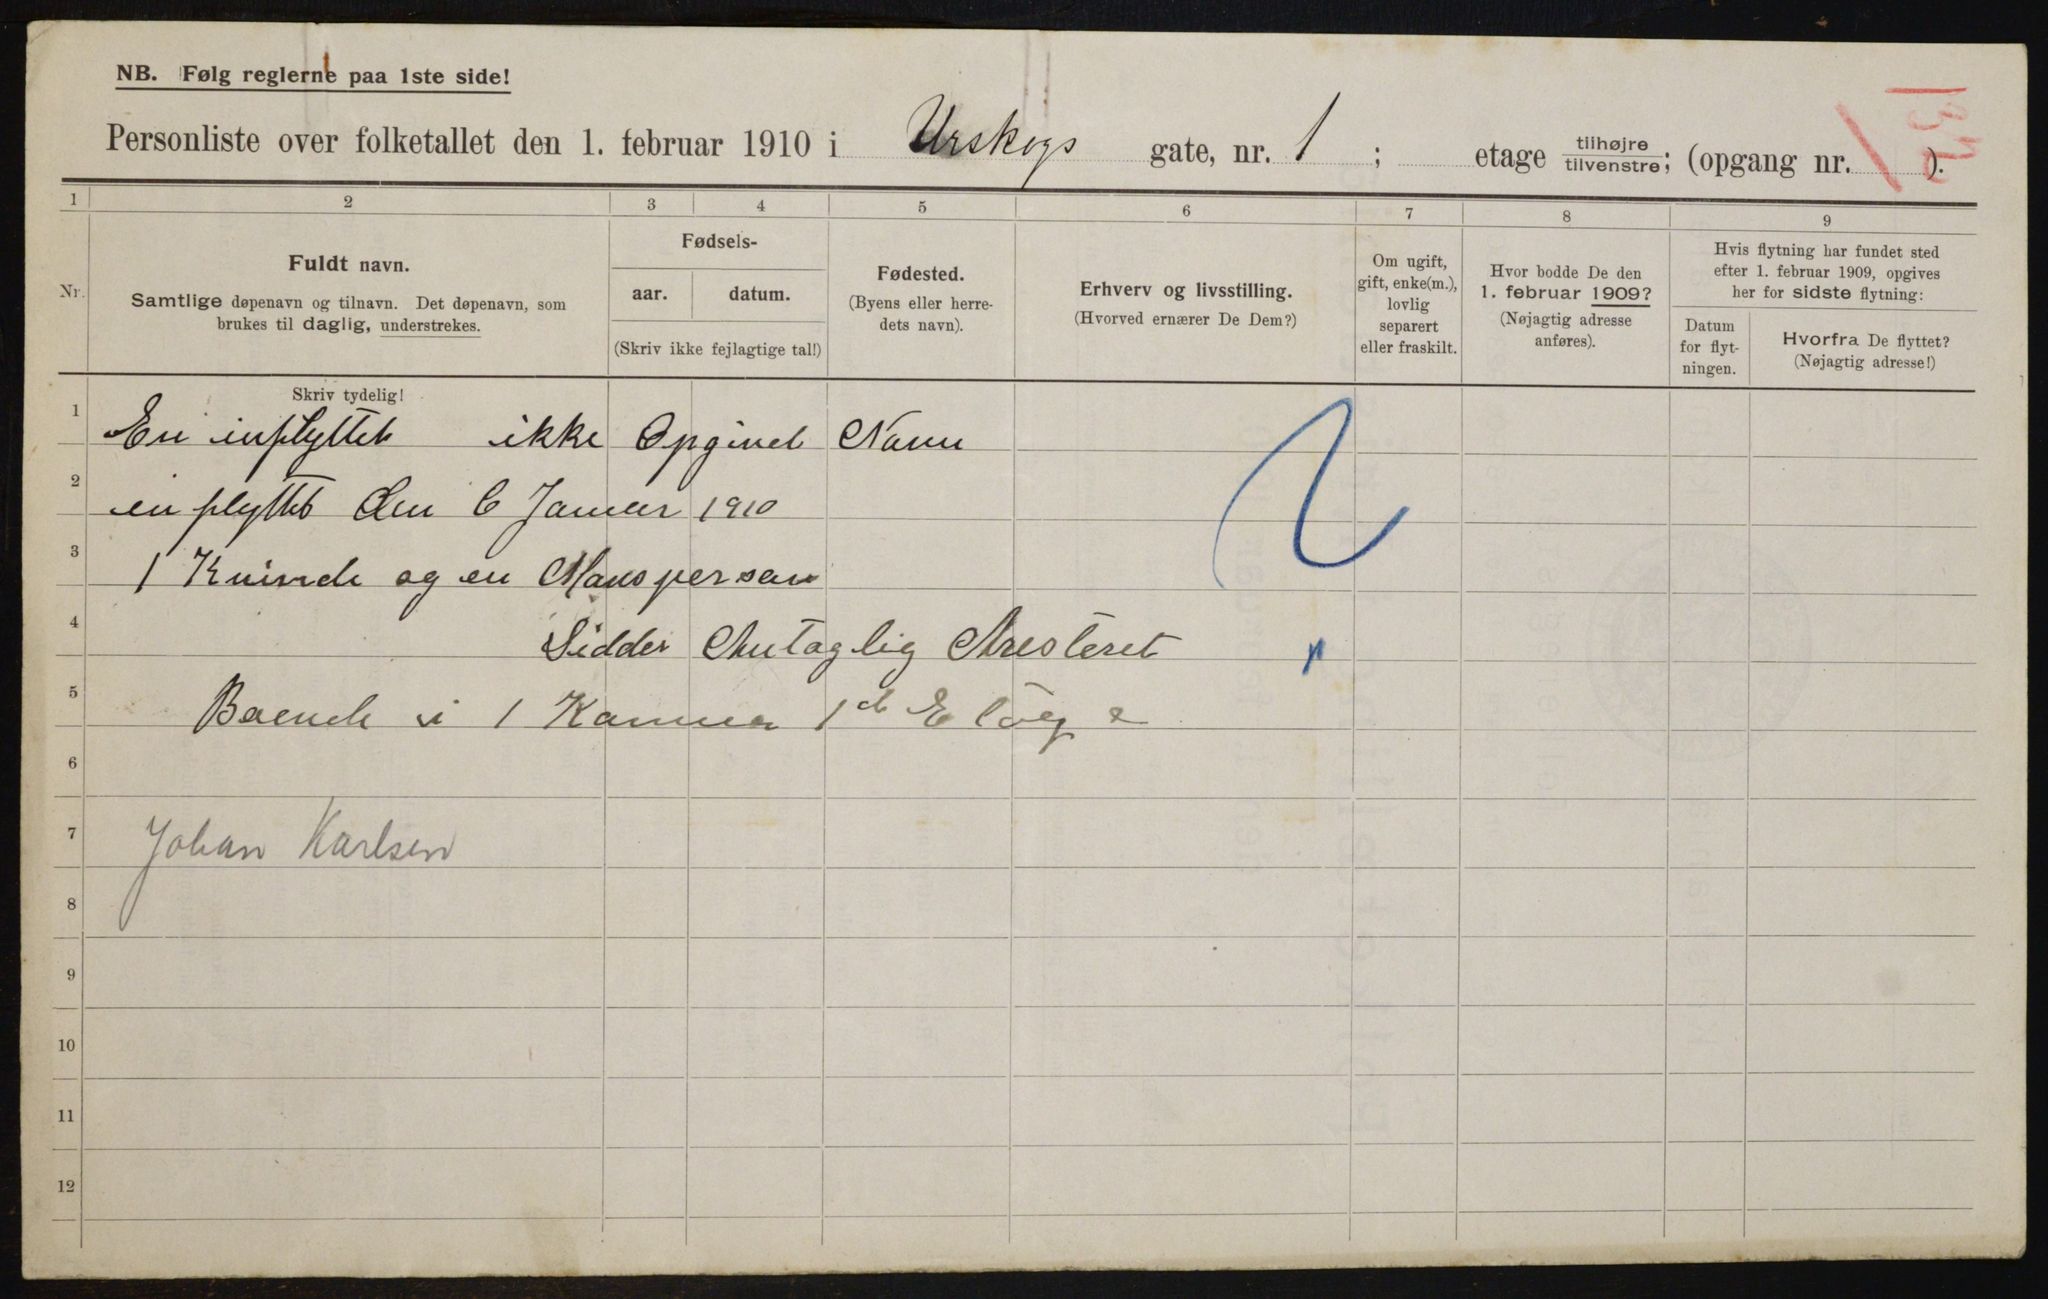 NB. Følg reglerne paa 1ste side!
Personliste over folketallet den 1. februar 1910 i Urskogs gate, nr. 1 ; etage tilhøjre tilvenstre; (opgang nr. ).
1 2 3 4 5 6 7 8 9
Nr.
Fuldt navn.
Samtlige døpenavn og tilnavn. Det døpenavn, som
brukes til daglig, understrekes.
Fødsels-
aar. datum.
(Skriv ikke fejlagtige tal!)
Fødested.
(Byens eller herre-
dets navn).
Erhverv og livsstilling.
(Hvorved ernærer De Dem?)
Om ugift,
gift, enke(m.),
lovlig
separert
eller fraskilt.
Hvor bodde De den
1. februar 1909?
(Nøjagtig adresse
anføres).
Hvis flytning har fundet sted
efter 1. februar 1909, opgives
her for sidste flytning:
Datum
for flyt-
ningen.
Hvorfra De flyttet?
(Nøjagtig adresse!)
Skriv tydelig!
1 En inflyttet ikke Opgivet Navn
2 flyttet den 6 Januar 1910
3 1 Kvinde og en Mansperson
4 Sidder Arresteret
5 Boende i 1 Kammer 1d Etage
6
7 Johan Karlsen
8
9
10
11
12